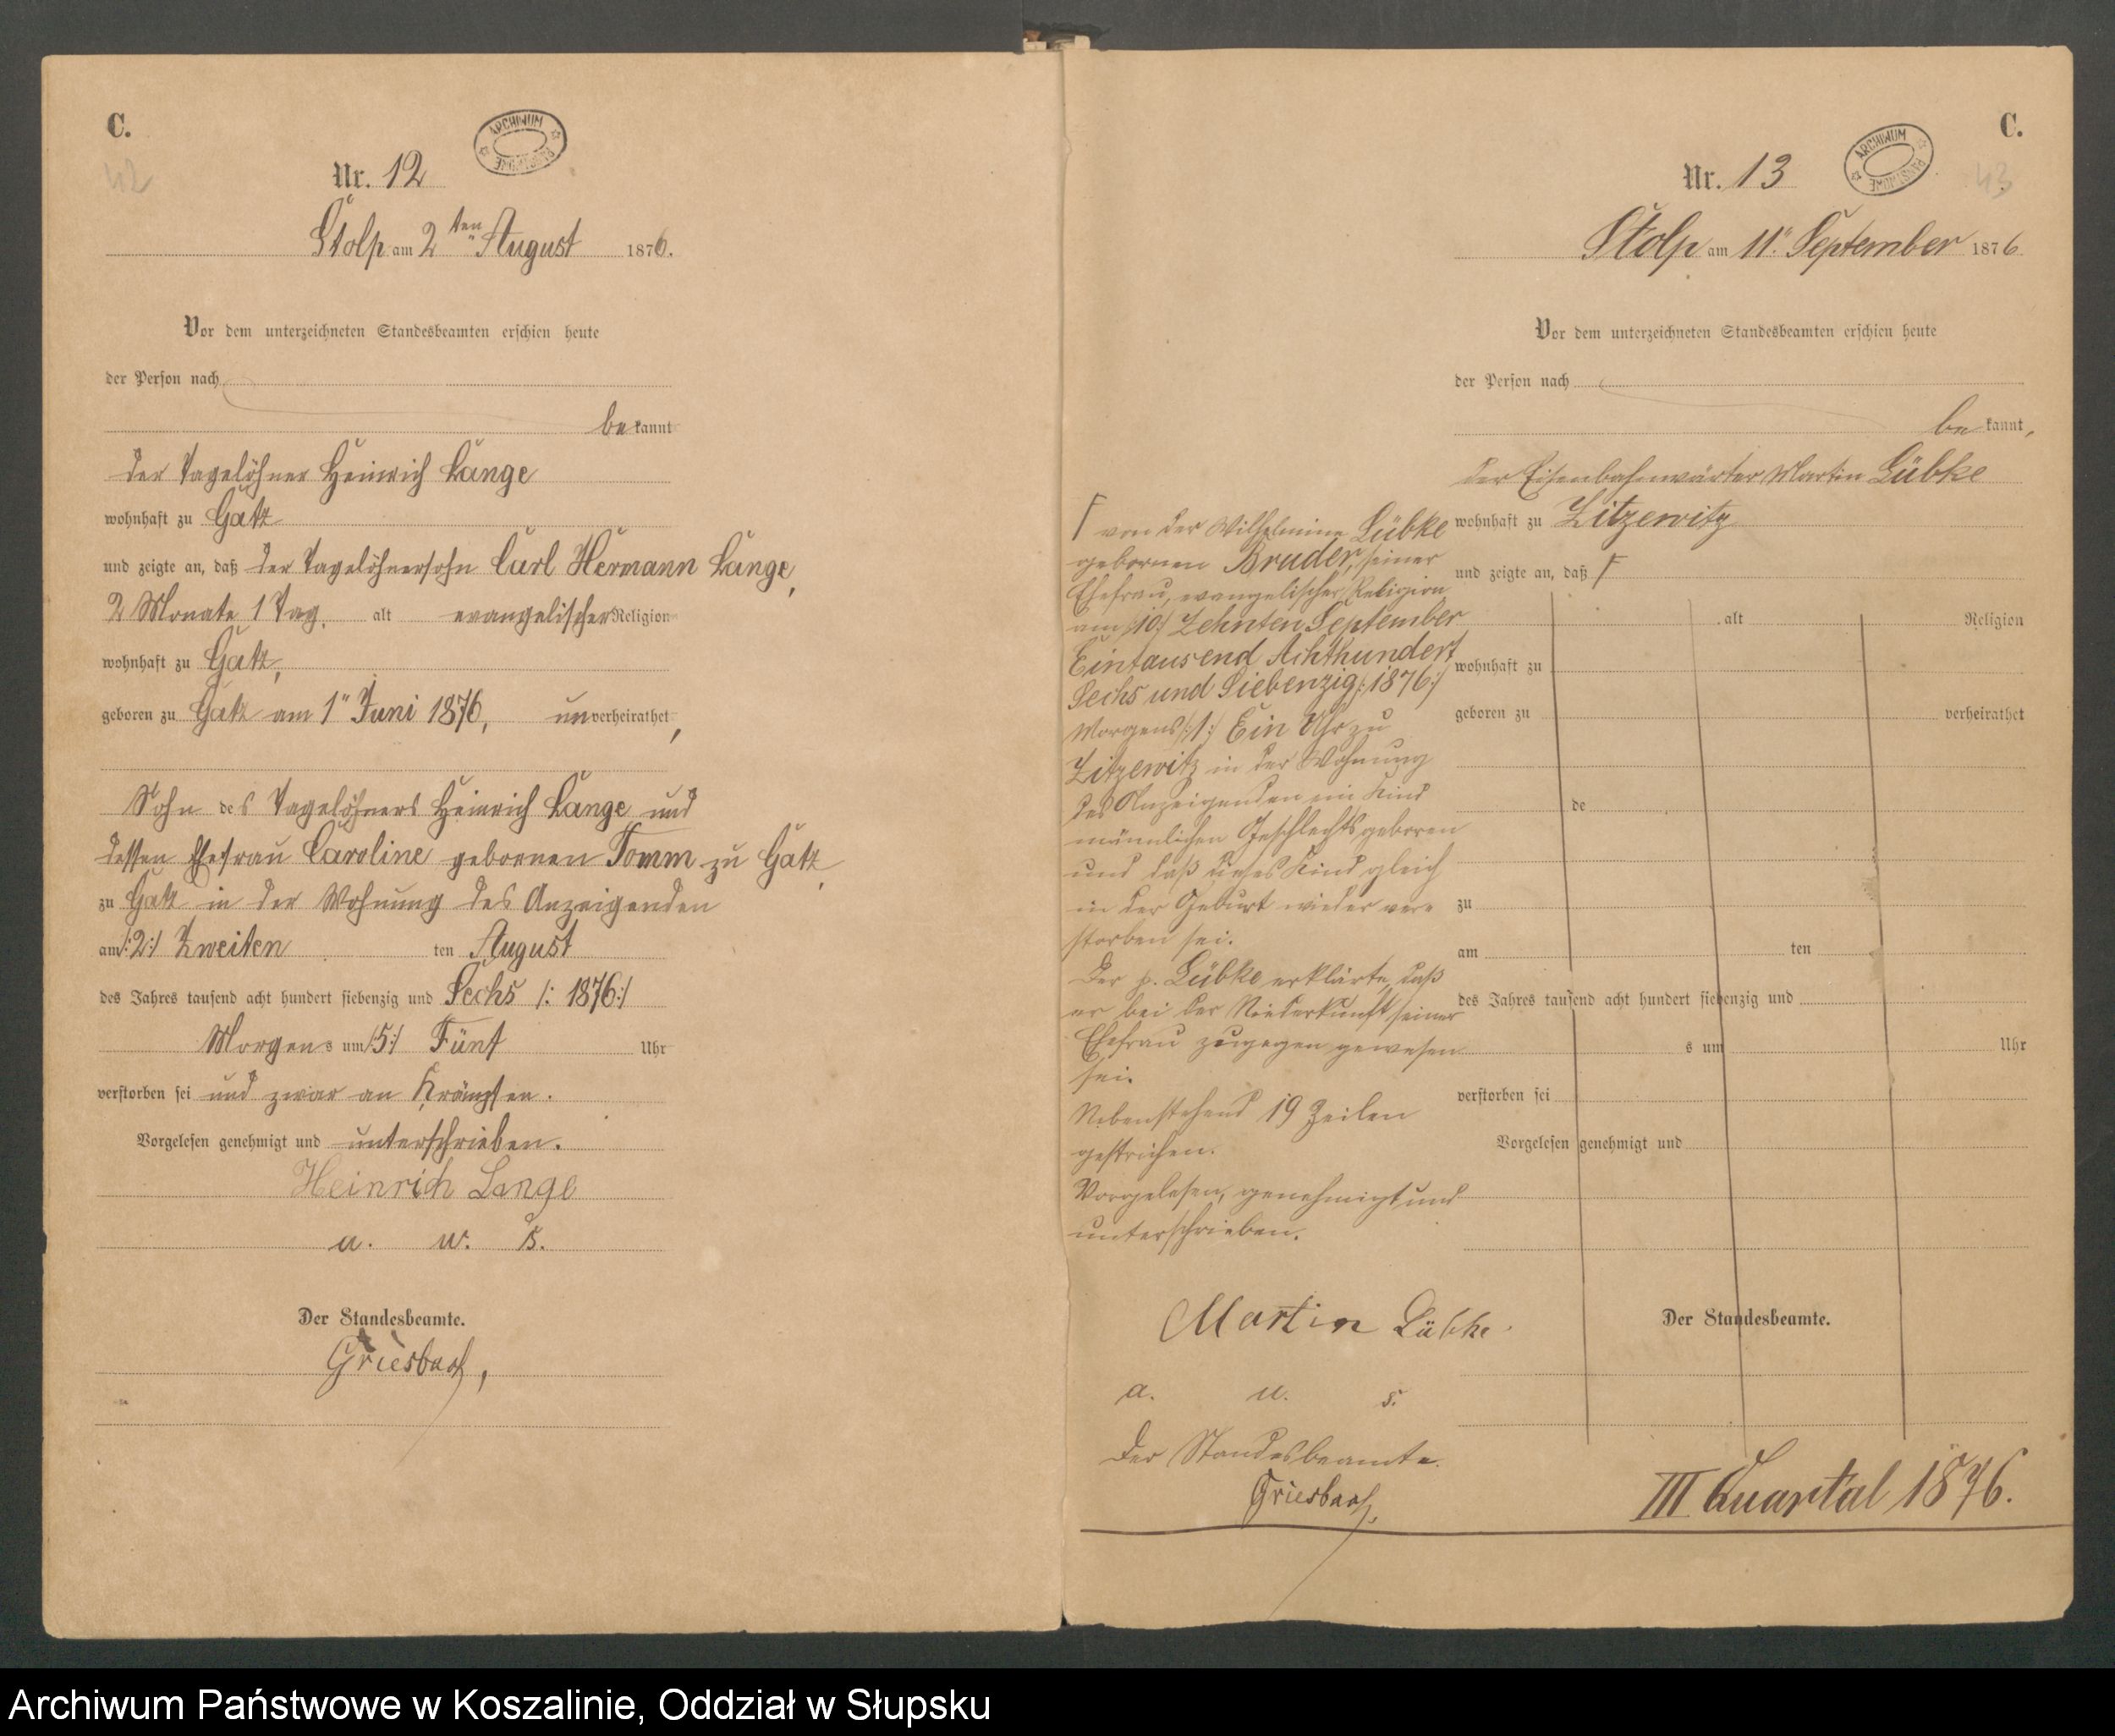 C.
42
Nr. 12
ARCHIWUM PAŃSTWOWE
Stolp am 2ten August 1876.
Vor dem unterzeichneten Standesbeamten erschien heute
der Person nach
bekannt
der Tagelöhner Heinrich Lange
wohnhaft zu Gatz
und zeigte an, daß der Tagelöhnersohn Carl Hermann Lange,
2 Monate 1 Tag, alt evangelischer Religion
wohnhaft zu Gatz,
geboren zu Gatz am 1" Juni 1876, unverheirathet,
Sohn des Tagelöhners Heinrich Lange und
dessen Ehefrau Caroline gebornen Tomm zu Gatz,
zu Gatz in der Wohnung des Anzeigenden
am /:2:/ Zweiten ten August
des Jahres tausend acht hundert siebenzig und Sechs /: 1876:/
Morgens um /:5:/ Fünf Uhr
verstorben sei und zwar an Krämpfen.
Vorgelesen genehmigt und unterschrieben.
Heinrich Lange
a. u. s.
Der Standesbeamte.
Griesbach,
C.
43
Nr. 13
ARCHIWUM PAŃSTWOWE
Stolp am 11" September 1876
Vor dem unterzeichneten Standesbeamten erschien heute
der Person nach
bekannt,
der Eisenbahnwärter Martin Lübke
wohnhaft zu Zitzewitz
und zeigte an, daß F
alt Religion
wohnhaft zu
geboren zu verheirathet
de
zu
am ten
des Jahres tausend acht hundert siebenzig und
s um Uhr
verstorben sei
Vorgelesen genehmigt und
Der Standesbeamte.
F von der Wilhelmine Lübke
gebornen Bruder, seiner
Ehefrau, evangelischer Religion
am /:10:/ Zehnten September
Eintausend Achthundert
Sechs und Siebenzig /:1876:/
Morgens /:1:/ Ein Uhr zu
Zitzewitz in der Wohnung
des Anzeigenden ein Kind
männlichen Geschlechts geboren
und daß dieses Kind gleich
in der Geburt wieder ver=
storben sei.
Der p. Lübke erklärte, daß
er bei der Niederkunft seiner
Ehefrau zugegen gewesen
sei.
Nebenstehend 19 Zeilen
gestrichen.
Vorgelesen, genehmigt und
unterschrieben.
Martin Lübke.
a. u. s.
Der Standesbeamte.
Griesbach,
III Quartal 1876.
Archiwum Państwowe w Koszalinie, Oddział w Słupsku